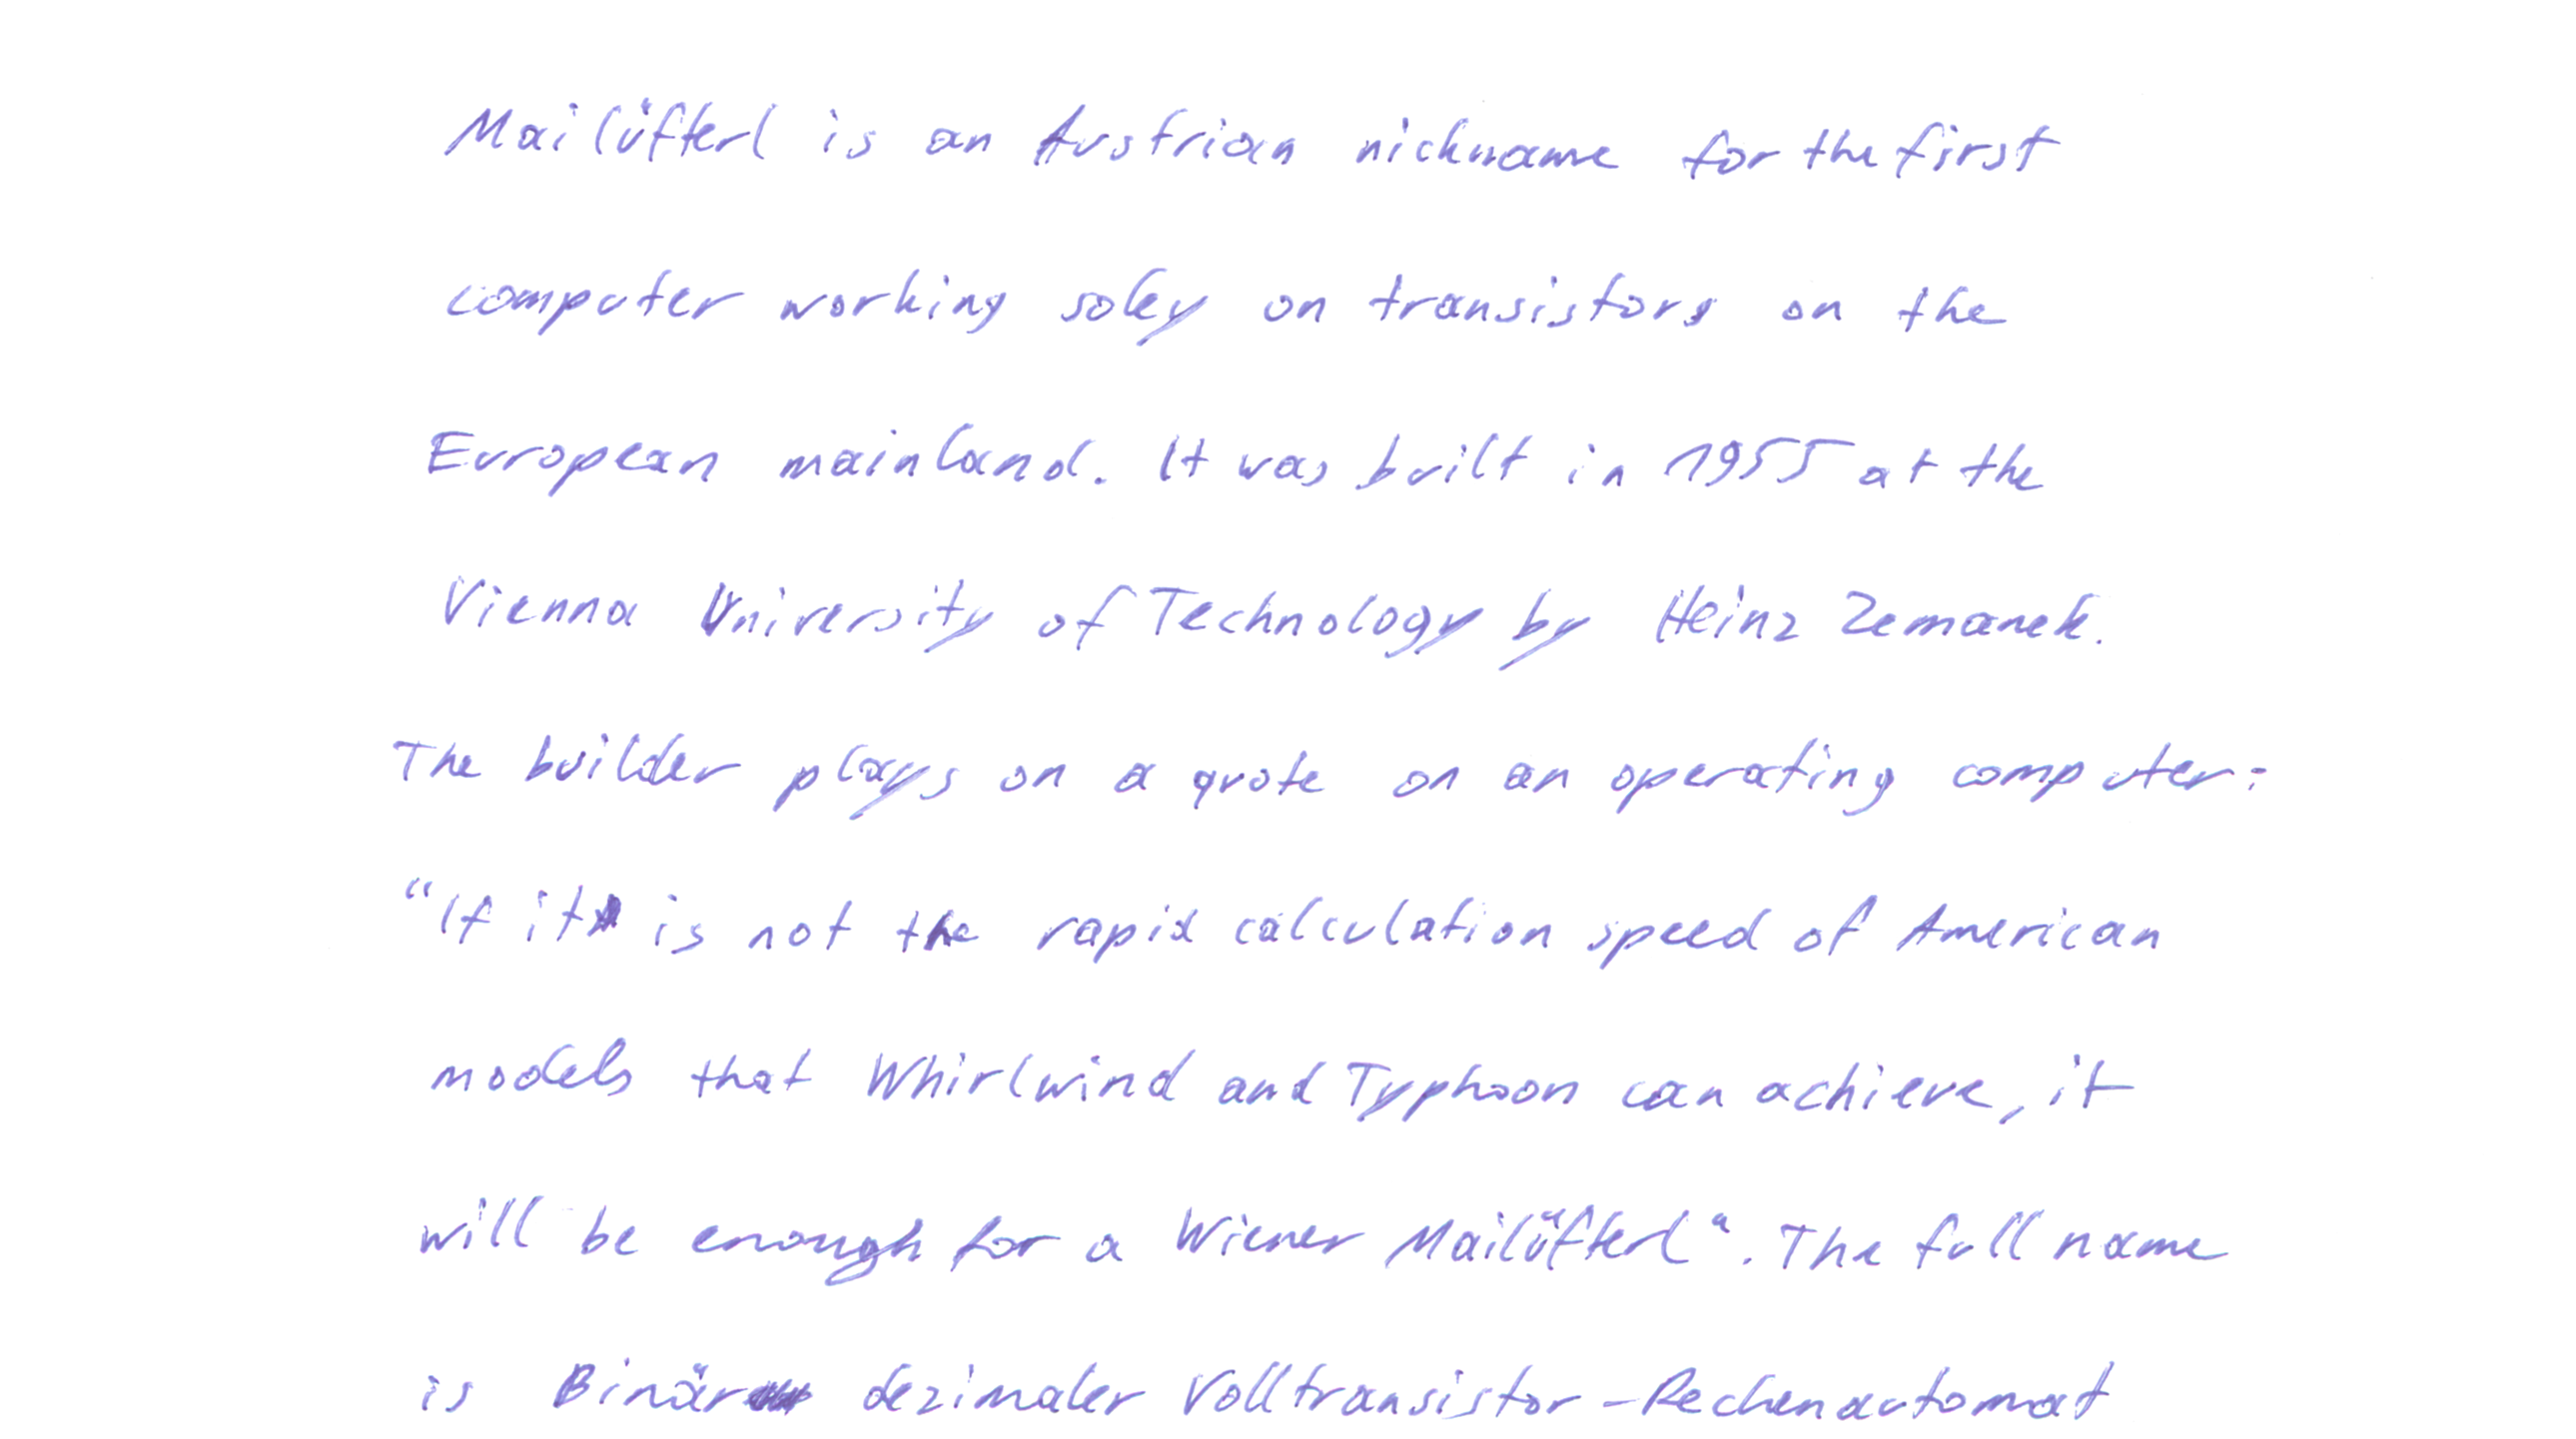 Mailüfterl is an Austrian nickname for the first
computer working soley on transistors on the
European mainland. It was built in 1955 at the
Vienna University of Technology by Heinz Zemanek.
The builder plays on a quote on an operating computer:
"If it is not the rapid calculation speed of American
models that Whirlwind and Typhoon can achieve, it
will be enough for a Wiener Mailüfterl". The full name
is Binär dezimaler Volltransistor-Rechenautomat